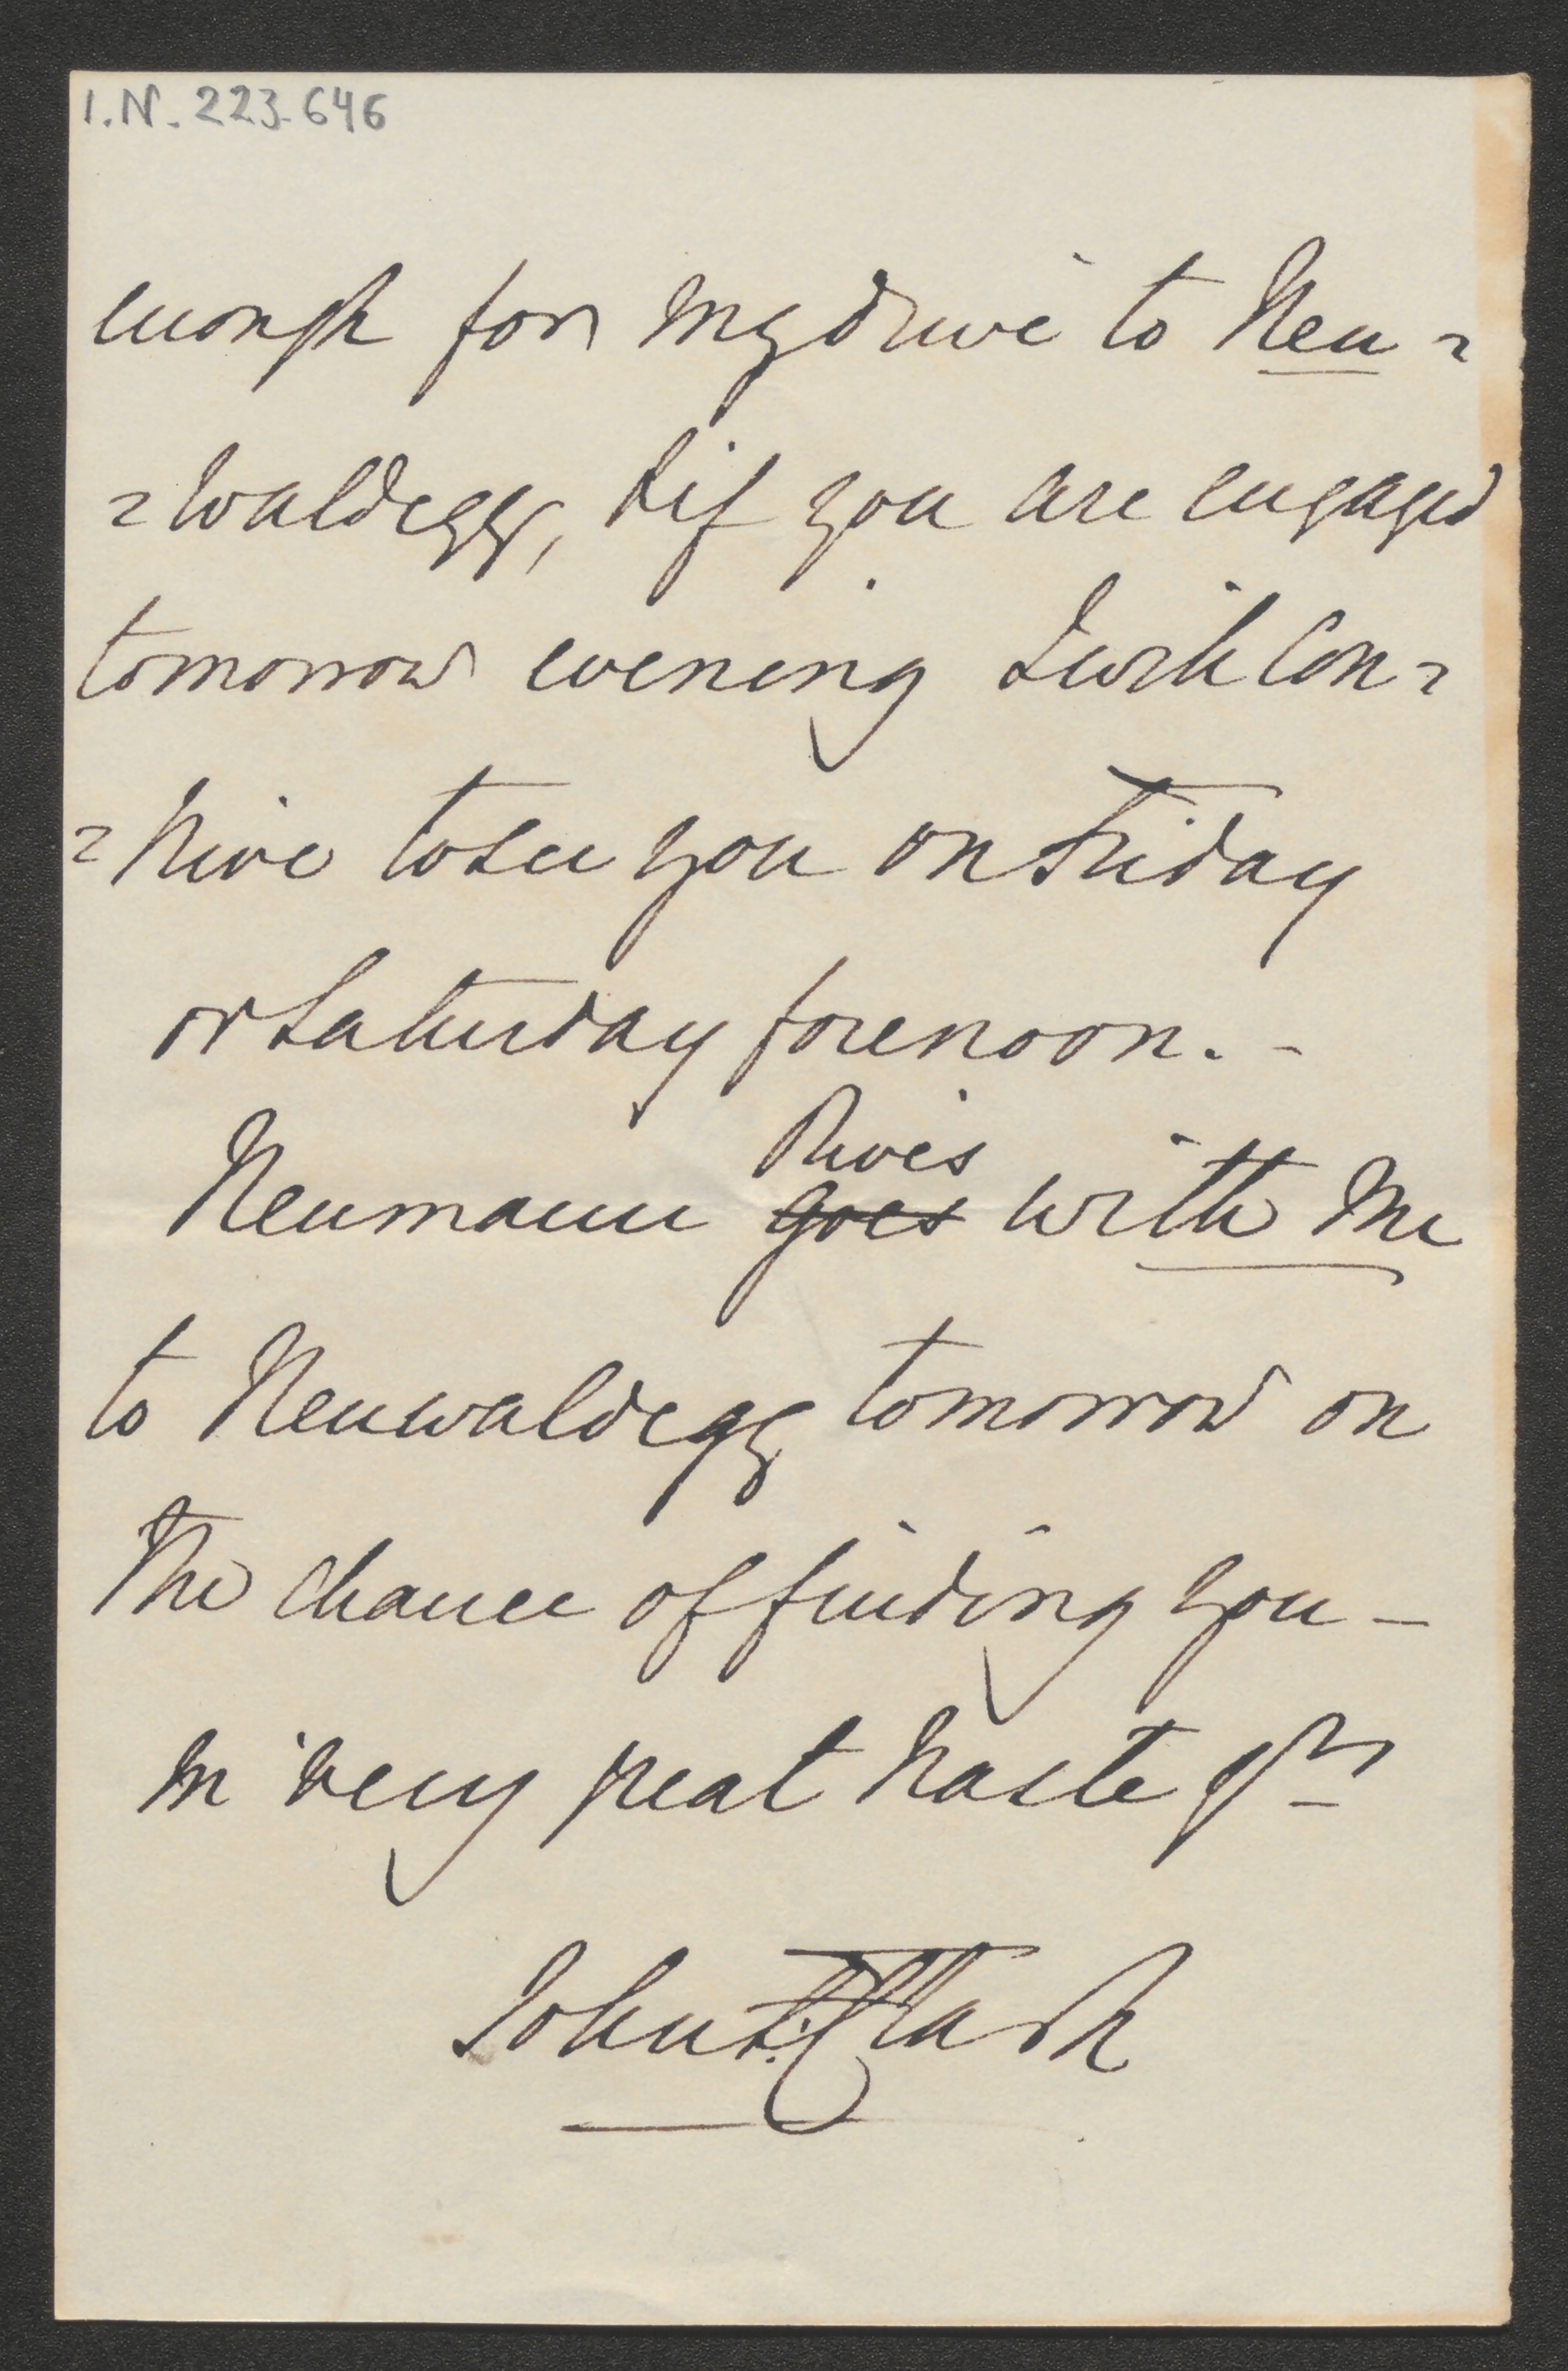 I.N. 223.646
enough for my drive to Neu=
=waldegg, & if you are engaged
tomorrow evening I will Con=
=trive to see you on Friday
or Saturday forenoon. -
Drives
Neumann goes with me
to Neuwaldegg tomorrow on
the chance of finding you -
In very great haste yrs
John